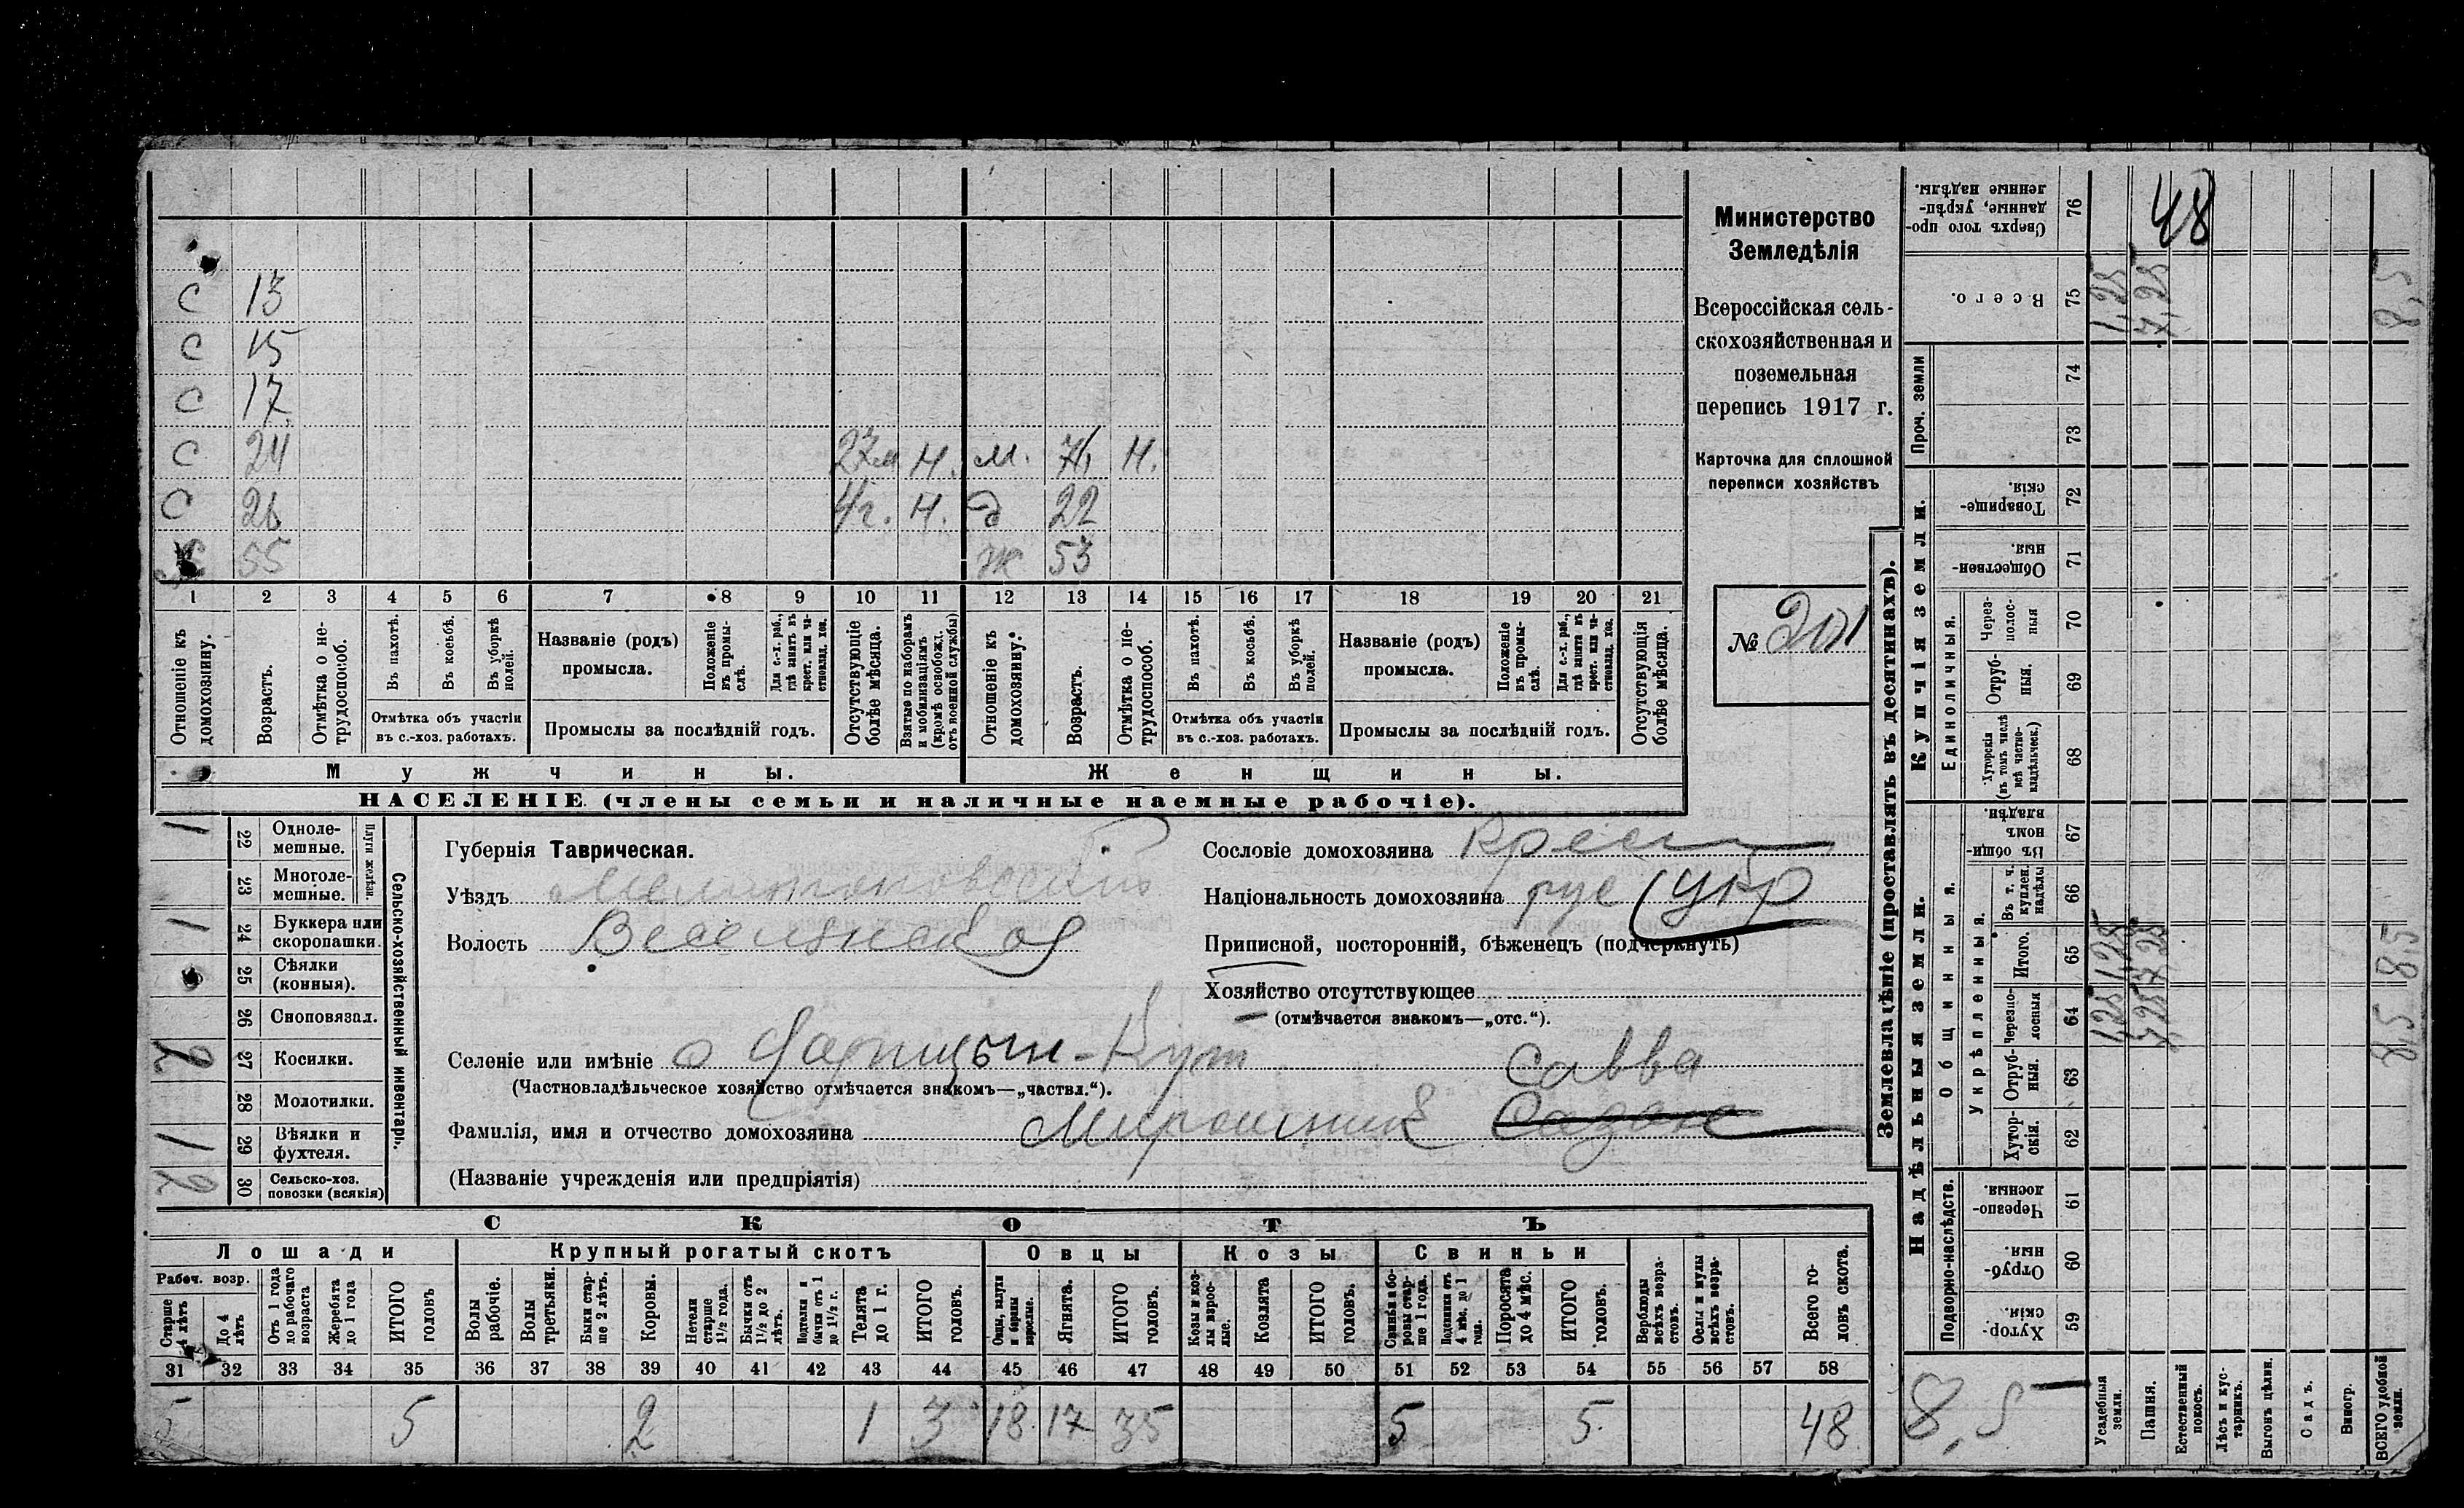 С 13
С 15
С 17
С 24 27м Н. м. 71 Н.
С 26 4г. Н. д 22
55 ж 53
1 2 3 4 5 6 7 8 9 10 11 12 13 14 15 16 17 18 19 20 21
Отношеніе къ домохозяину.
Возрастъ.
Отмѣтка о нетрудоспособ.
Въ пахотѣ.
Въ косьбѣ.
Въ уборкѣ полей.
Отмѣтка объ участіи въ с.-хоз. работахъ.
Названіе (родъ) промысла.
Положеніе въ промыслѣ.
Для с.-х. раб., гдѣ занятъ въ крест. или частновлад. хоз.
Промыслы за послѣдній годъ.
Отсутствующіе болѣе мѣсяца.
Взятые по наборамъ и мобилизаціямъ (кромѣ освобожд. отъ военной службы)
Отношеніе къ домохозяину.
Возрастъ.
Отмѣтка о нетрудоспособ.
Въ пахотѣ.
Въ косьбѣ.
Въ уборкѣ полей.
Отмѣтка объ участіи въ с.-хоз. работахъ.
Названіе (родъ) промысла.
Положеніе въ промыслѣ.
Для с.-х. раб., гдѣ занята въ крест. или частновлад. хоз.
Промыслы за послѣдній годъ.
Отсутствующія болѣе мѣсяца.
Мужчины. Женщины.
НАСЕЛЕНІЕ (члены семьи и наличные наемные рабочіе).
Министерство
Земледѣлія
Всероссійская сель-
скохозяйственная и
поземельная
перепись 1917 г.
Карточка для сплошной
переписи хозяйствъ
№ 201
Сельско-хозяйственный инвентарь.
Плуги желѣзн.
1 22 Однолемешные.
23 Многолемешные.
1 24 Буккера или скоропашки.
25 Сѣялки (конныя).
26 Сноповязал.
2 27 Косилки.
28 Молотилки.
1 29 Вѣялки и фухтеля.
2 30 Сельско-хоз. повозки (всякія)
Губернія Таврическая.
Уѣздъ Мелитопольскій
Волость Веселянская
Селеніе или имѣніе с Царицын-Кут
(Частновладѣльческое хозяйство отмѣчается знакомъ—„частвл.“).
Савва
Фамилія, имя и отчество домохозяина Мирошник
(Названіе учрежденія или предпріятія)
Сословіе домохозяина Крест
Національность домохозяина рус (укр
Приписной, посторонній, бѣженецъ (подчеркнуть)
Хозяйство отсутствующее
(отмѣчается знакомъ—„отс.“).
СКОТЪ
Лошади Крупный рогатый скотъ Овцы Козы Свиньи
Рабоч. возр.
Старше 4 лѣтъ
До 4 лѣтъ
Отъ 1 года до рабочаго возраста
Жеребята до 1 года
ИТОГО головъ
Волы рабочіе.
Волы третьяки.
Быки старше 2 лѣтъ.
Коровы.
Нетели старше 1½ года.
Бычки отъ 1½ до 2 лѣтъ.
Подтелки и бычки отъ 1 до 1½ г.
Телята до 1 г.
ИТОГО головъ.
Овцы, валухи и бараны взрослые.
Ягнята.
ИТОГО головъ.
Козы и козлы взрослые.
Козлята
ИТОГО головъ.
Свиньи и боровы старше 1 года.
Подсвинки отъ 4 мѣс. до 1 года.
Поросята до 4 мѣс.
ИТОГО головъ.
Верблюды всѣхъ возрастовъ.
Ослы и мулы всѣхъ возрастовъ.
Всего головъ скота.
31 32 33 34 35 36 37 38 39 40 41 42 43 44 45 46 47 48 49 50 51 52 53 54 55 56 57 58
5 5 2 1 3 18 17 35 5 5 48
Землевладѣніе (проставлять въ десятинахъ).
Надѣльныя земли. Купчія земли. Проч. земли
Подворно-наслѣдств.
Общинныя.
Укрѣпленныя.
Единоличныя.
59 Хуторскія.
60 Отрубныя.
61 Черезполосныя
62 Хуторскія.
63 Отрубныя.
64 Черезполосныя
65 Итого.
66 Въ т. ч. куплен. надѣлы
67 Въ общинномъ владѣн.
68 Хуторскія (въ томъ числѣ всѣ частновладѣльческ.)
69 Отрубныя.
70 Черезполосныя
71 Общественныя.
72 Товарищескія.
73
74
75 Всего.
76 Сверхъ того проданные, укрѣпленные надѣлы.
48
Усадебныя земли. 1,25 1,25 1,25
Пашня. 7,25 7,25 7,25
Естественный покосъ.
Лѣсъ и кустарникъ.
Выгонъ цѣлин.
Садъ.
Виногр.
ВСЕГО удобной земли. 8,5 8,5 8,5
8,5